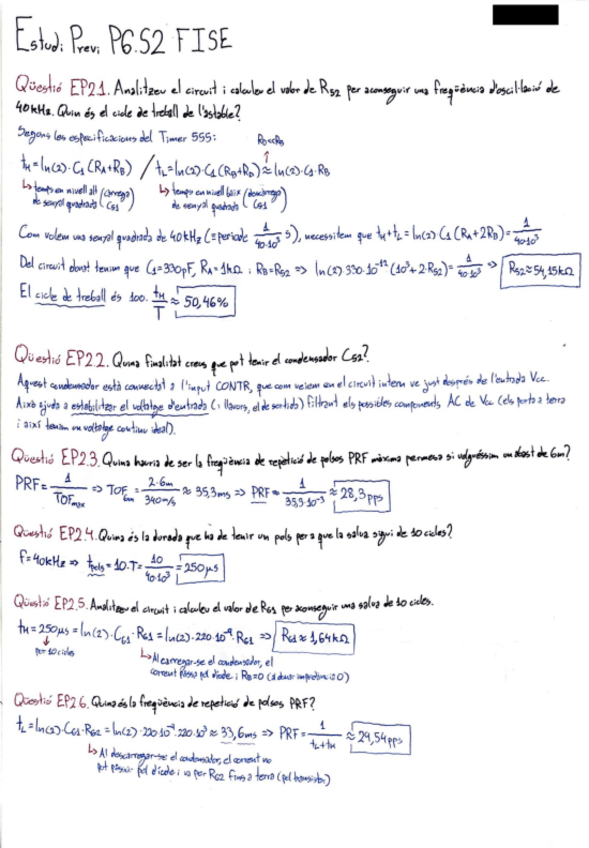 Estudi Previ P6.S2 FISE
Qüestió EP2.1. Analitzeu el circuit i calculeu el valor de R52 per aconseguir una freqüència d'oscil·lació de
40kHz. Quin és el cicle de treball de l'astable?
Segons les especificacions del Timer 555:
RA<<RB
tH = ln(2)·C1(RA+RB) / tL = ln(2)·C1(RB+RB) ≈ ln(2)·C1·RB
↳ temps en nivell alt (càrrega ↳ temps en nivell baix (descàrrega
de senyal quadrada C51) de senyal quadrada C51)
Com volem una senyal quadrada de 40kHz (= període 1/40·10³ s), necessitem que tH+tL = ln(2) C1 (RA+2RB) = 1/40·10³
Del circuit donat tenim que C1=330pF, RA=1kΩ i RB=R52 => ln(2) 330·10⁻¹² (10³+2·R52) = 1/40·10³ => R52≈54,15kΩ
El cicle de treball és 100· tH/T ≈ 50,46%
Qüestió EP2.2. Quina finalitat creus que pot tenir el condensador C52?
Aquest condensador està connectat a l'input CONTR, que com veiem en el circuit intern ve just després de l'entrada Vcc.
Això ajuda a estabilitzar el voltatge d'entrada (i llavors, el de sortida) filtrant els possibles components AC de Vcc (els porta a terra
i així tenim un voltatge continu ideal).
Qüestió EP2.3. Quina hauria de ser la freqüència de repetició de polsos PRF màxima permesa si volguéssim un abast de 6m?
PRF = 1/TOFmax => TOF6m = 2·6m/340m/s ≈ 35,3ms => PRF = 1/35,3·10⁻³ ≈ 28,3pps
Qüestió EP2.4. Quina és la durada que ha de tenir un pols per a que la salva sigui de 10 cicles?
f=40kHz => tpols = 10·T = 10/40·10³ = 250μs
Qüestió EP2.5. Analitzeu el circuit i calculeu el valor de R61 per aconseguir una salva de 10 cicles.
tH = 250μs = ln(2)·C61·R61 = ln(2)·220·10⁻⁹·R61 => R61≈1,64kΩ
↓
per 10 cicles
↳ Al carregar-se el condensador, el
corrent passa pel díode i RB=0 (a baix impedància 0)
Qüestió EP2.6. Quina és la freqüència de repetició de polsos PRF?
tL = ln(2)·C61·R62 = ln(2)·220·10⁻⁹·220·10³ ≈ 33,6ms => PRF = 1/tL+tH ≈ 29,54pps
↳ Al descarregar-se el condensador, el corrent no
pot passar pel díode i va per R62 fins a terra (pel transistor)